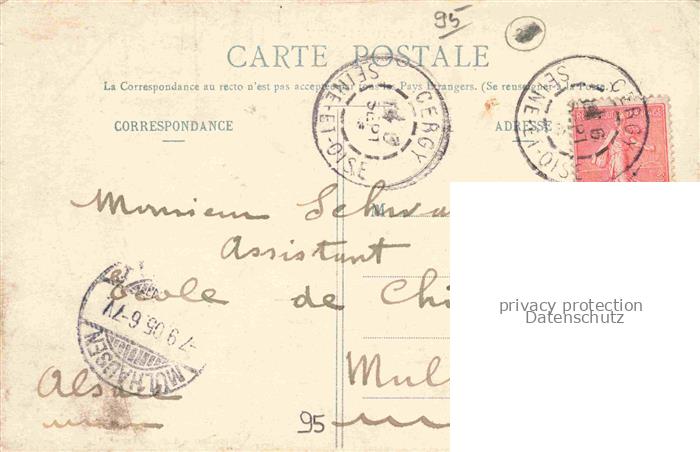 95
CARTE POSTALE
La Correspondance au recto n'est pas acceptée par tous les Pays Etrangers. (Se renseigner à la Poste)
CORRESPONDANCE
ADRESSE
CERGY
SEINE-ET-OISE
6
SEPT
CERGY
SEINE-ET-OISE
6
SEPT
M
Monsieur Schwa
Assistant
Ecole de Chi
Mul
Alsace
MÜLHAUSEN
7.9.05.6-7V
95
privacy protection
Datenschutz